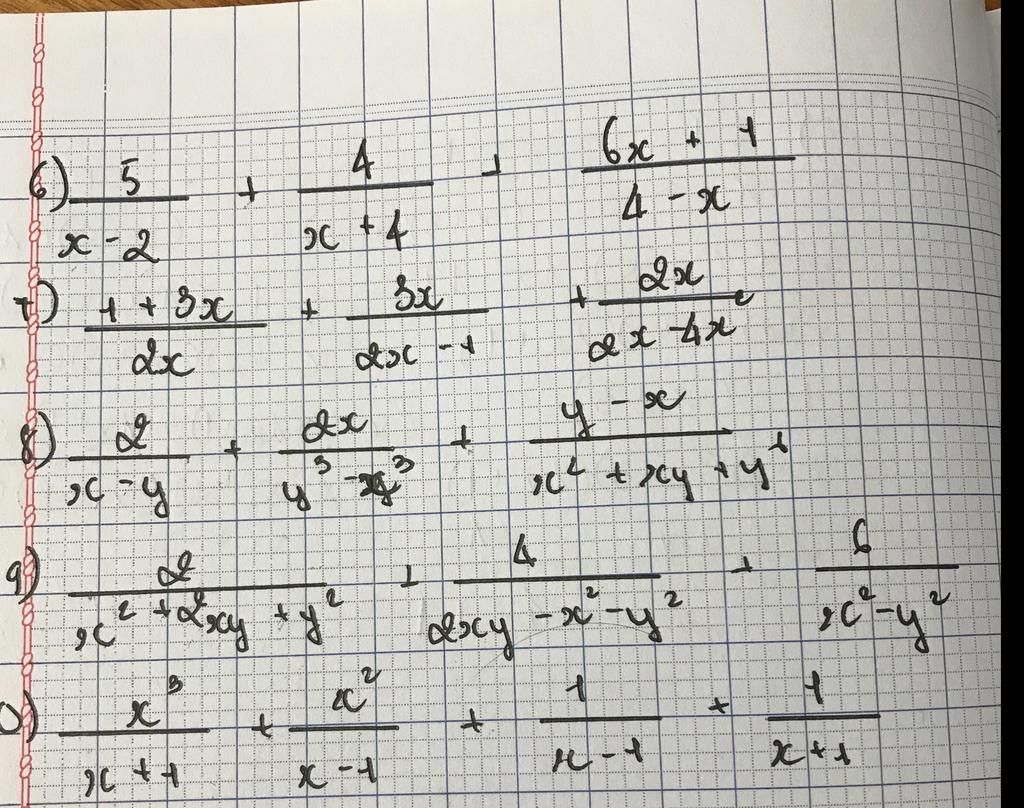 6) 5/(x - 2) + 4/(x + 4) + (6x + 1)/(4 - x)
7) (1 + 3x)/(2x) + 3x/(2x - 1) + 2x/(2x - 4x²)
8) 2/(x - y) + 2x/(y³ - x³) + (y - x)/(x² + xy + y²)
9) 2/(x² + 2xy + y²) + 4/(2xy - x² - y²) + 6/(x² - y²)
0) x³/(x + 1) + x²/(x - 1) + 1/(x - 1) + 1/(x + 1)